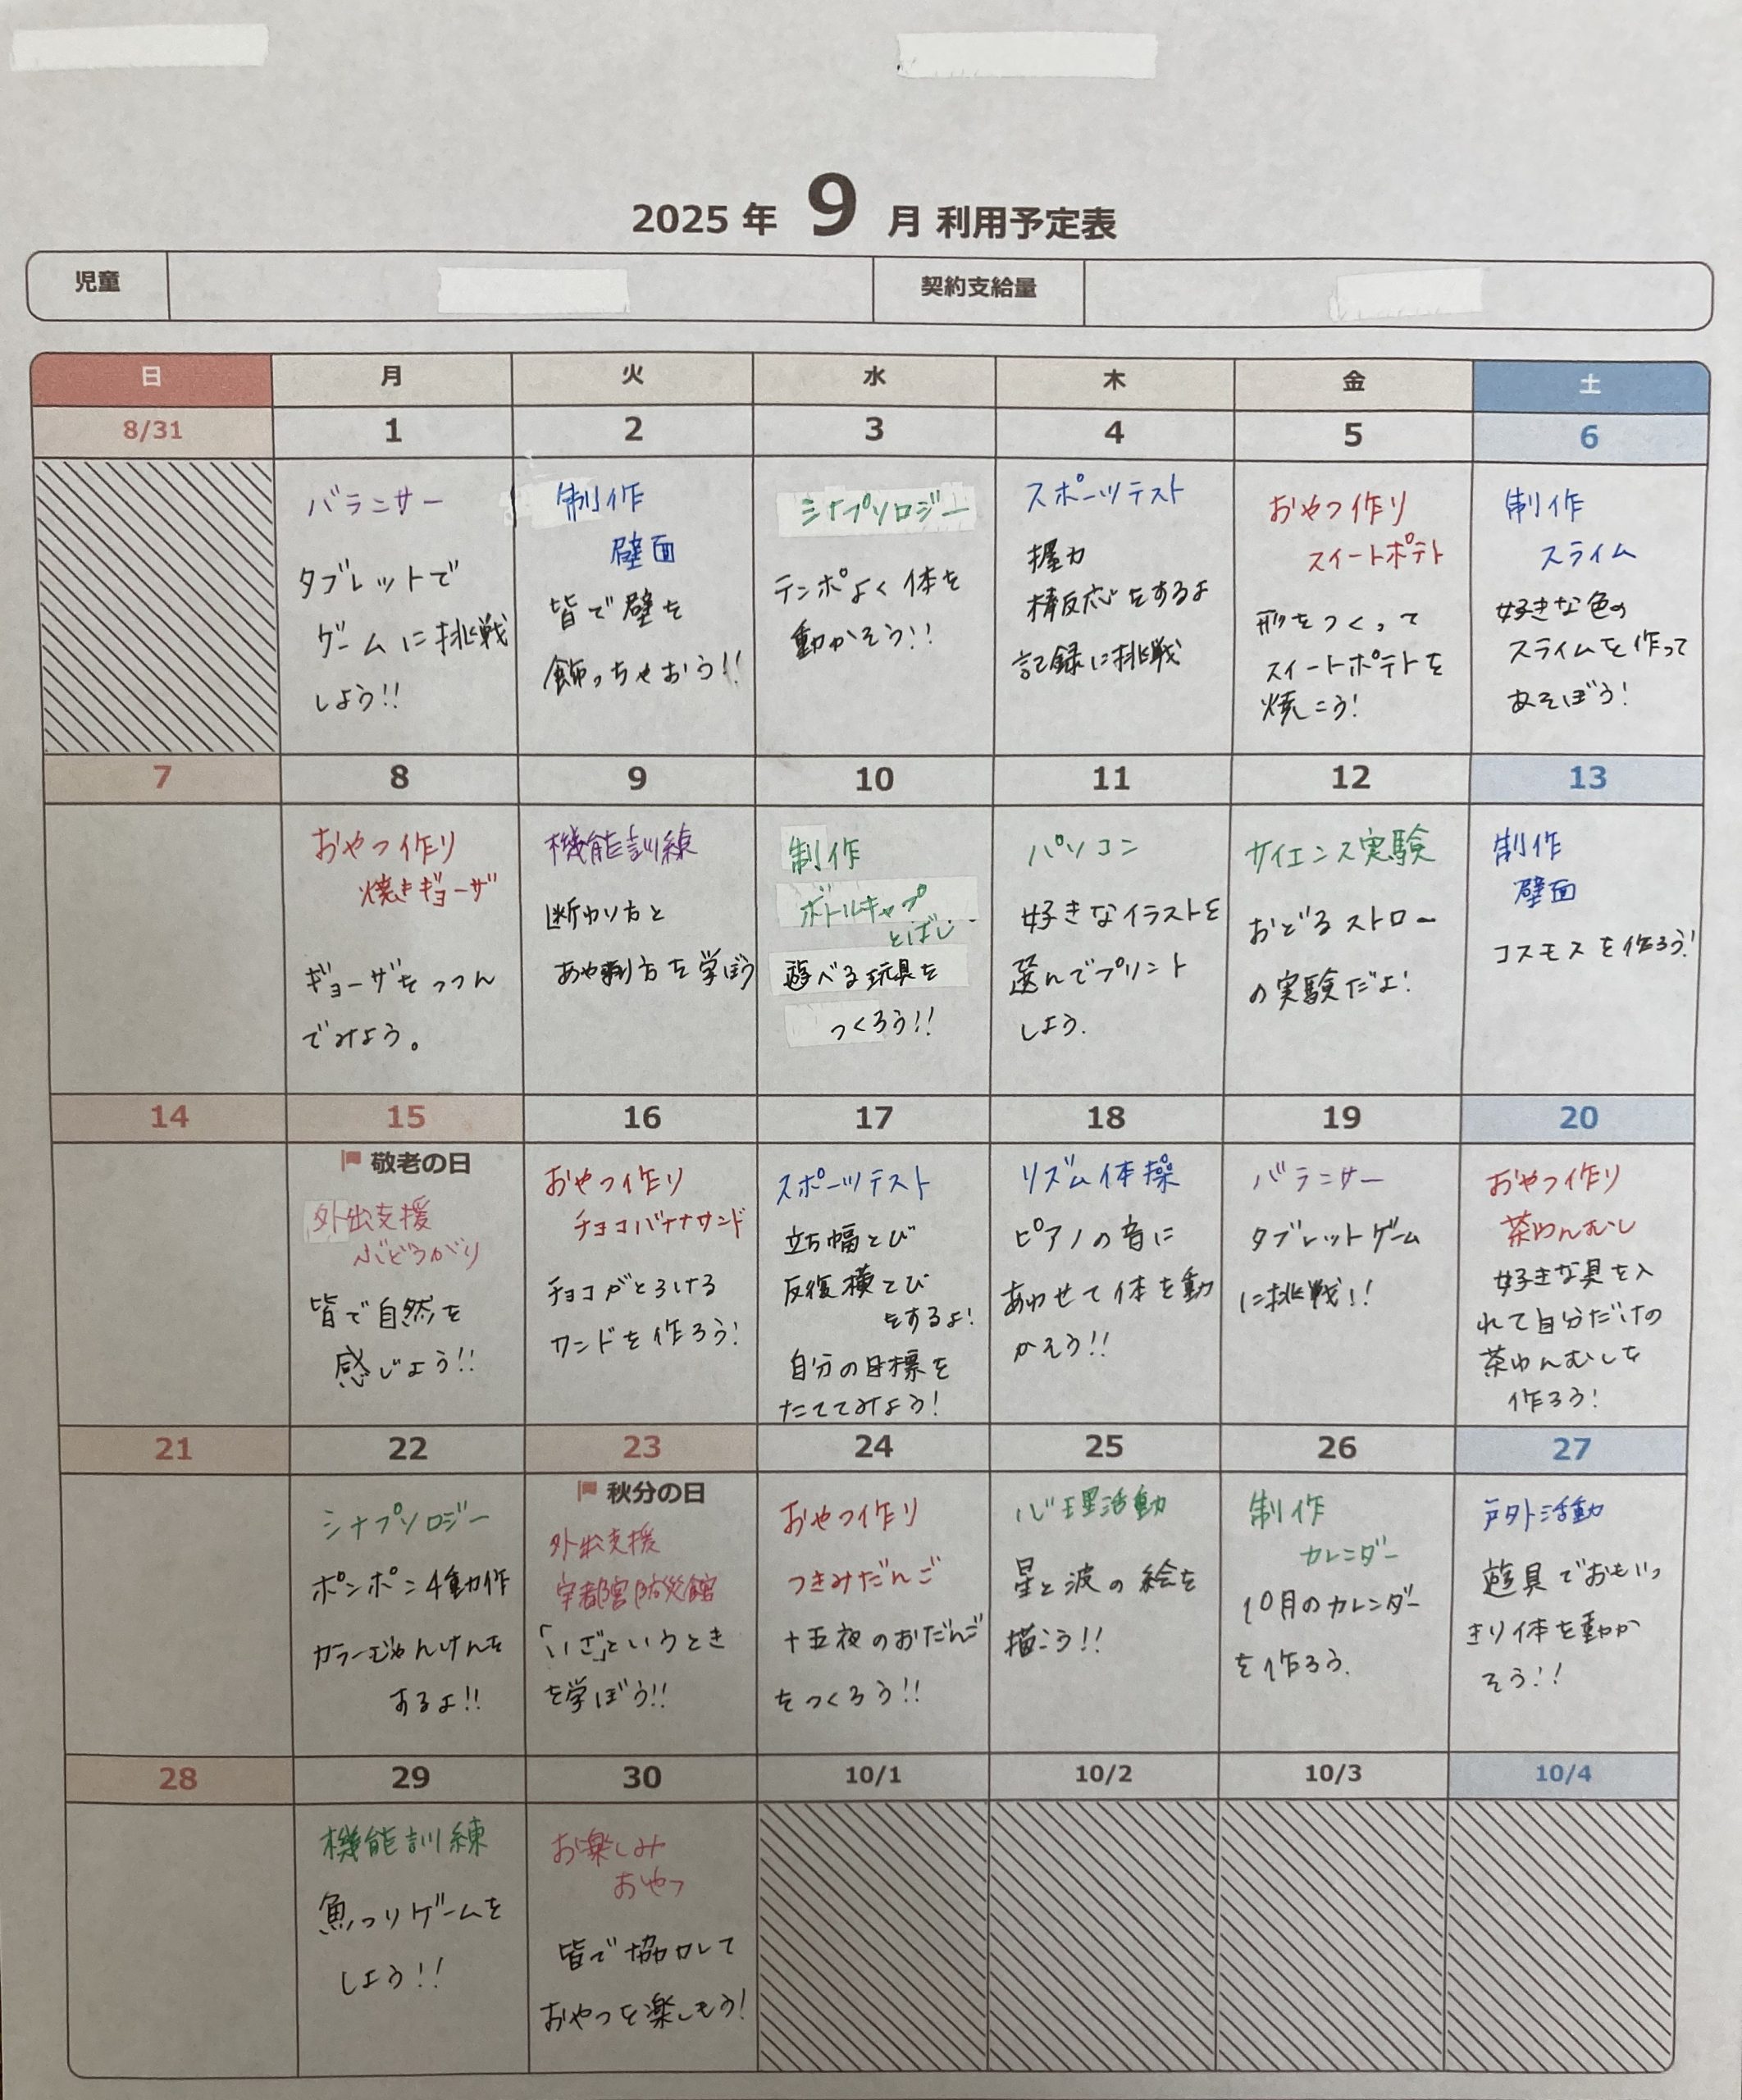 2025 年 9 月 利用予定表
児童
契約支給量
日 月 火 水 木 金 土
8/31 1 2 3 4 5 6
バランサー
タブレットで
ゲームに挑戦
しよう!!
制作
壁面
皆で壁を
飾っちゃおう!!
シナプソロジー
テンポよく体を
動かそう!!
スポーツテスト
握力
棒反応をするよ
記録に挑戦
おやつ作り
スイートポテト
形をつくって
スイートポテトを
焼こう!
制作
スライム
好きな色の
スライムを作って
あそぼう!
7 8 9 10 11 12 13
おやつ作り
焼きギョーザ
ギョーザをつつん
でみよう。
機能訓練
断わり方と
あや謝り方を学ぼう
制作
ボトルキャップ
とばし
遊べる玩具を
つくろう!!
パソコン
好きなイラストを
選んでプリント
しよう.
サイエンス実験
おどるストロー
の実験だよ!
制作
壁面
コスモスを作ろう!
14 15 16 17 18 19 20
敬老の日
外出支援
ぶどうがり
皆で自然を
感じよう!!
おやつ作り
チョコバナナサンド
チョコがとろける
サンドを作ろう!
スポーツテスト
立ち幅とび
反復横とび
をするよ!
自分の目標を
たててみよう!
リズム体操
ピアノの音に
あわせて体を動
かそう!!
バランサー
タブレットゲーム
に挑戦!!
おやつ作り
茶わんむし
好きな具を入
れて自分だけの
茶わんむしを
作ろう!
21 22 23 24 25 26 27
シナプソロジー
ポンポン4動作
カラーじゃんけんを
するよ!!
秋分の日
外出支援
宇都宮防災館
「いざ」というとき
を学ぼう!!
おやつ作り
つきみだんご
十五夜のおだんご
をつくろう!!
心理活動
星と波の絵を
描こう!!
制作
カレンダー
10月のカレンダー
を作ろう.
戸外活動
遊具でおもいっ
きり体を動か
そう!!
28 29 30 10/1 10/2 10/3 10/4
機能訓練
魚つりゲームを
しよう!!
お楽しみ
おやつ
皆で協力して
おやつを楽しもう!